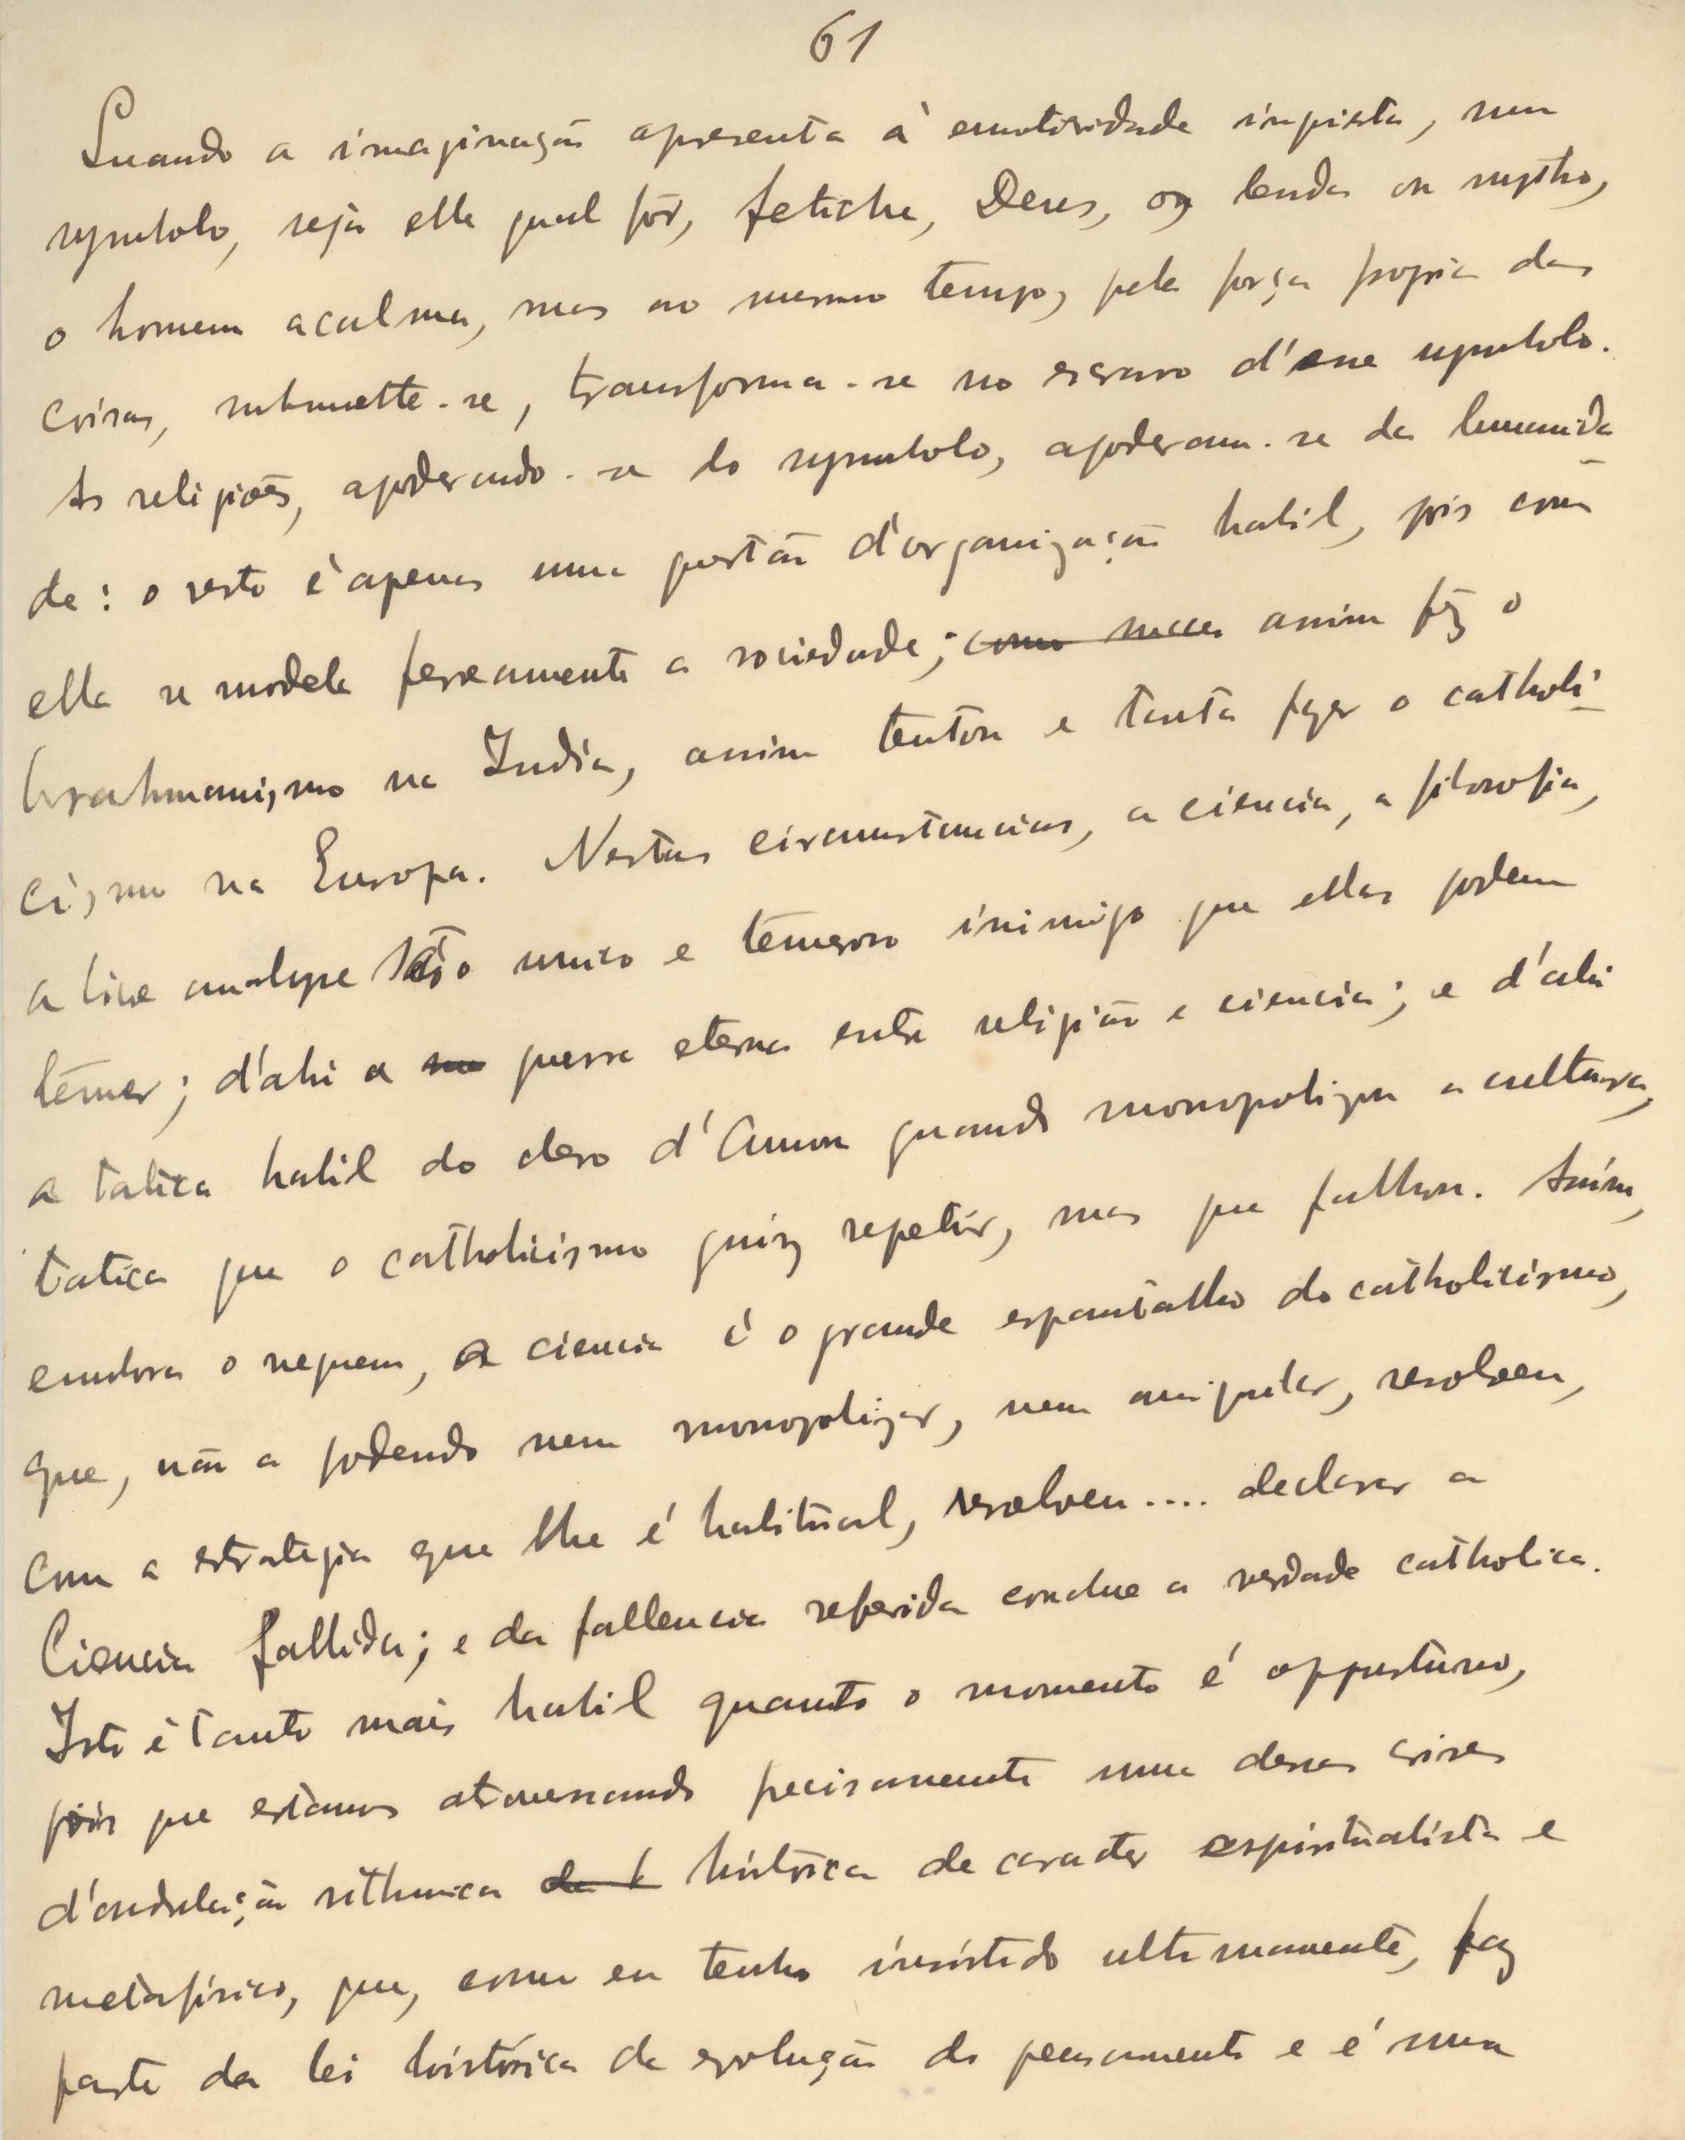 61
Quando a imaginação apresenta á emotividade inquieta, um
symbolo, seja elle qual fôr, fetiche, Deus, ou lenda ou mytho,
o homem acalma, mas ao mesmo tempo, pela força propria das
coisas, submette-se, transforma-se no escravo d'esse symbolo.
As religiões, apoderando-se do symbolo, apoderam-se da humanida
de: o resto é apenas uma questão d'organização habil, pois com
ella se modela ferreamente a sociedade; como assim fêz o
brahmanismo na India, assim tentou e tenta fazer o catholi-
cismo na Europa. Nestas circumstancias, a ciencia, a filosofia,
a livre analyse são o unico e temeroso inimigo que ellas podem
temer; d'ahi a guerra eterna entre religião e ciencia; e d'ahi
a tatica habil do clero d'Amon quando monopolizou a cultura,
tatica que o catholicismo quiz repetir, mas que falhou. Assim,
embora o neguem, a ciencia é o grande espantalho do catholicismo,
que, não a podendo nem monopolizar, nem aniquilar, resolveu,
com a estrategia que lhe é habitual, resolveu.... declarar a
Ciencia fallida; e da fallencia referida conclue a verdade catholica.
Isto é tanto mais habil quanto o momento é opportuno,
pois que estamos atravessando precisamente uma dessas crises
d'ondulação rithmica historica de caracter espiritualista e
metafisico, que, como eu tenho insistido ultimamente, faz
parte da lei historica da evolução do pensamento e é uma